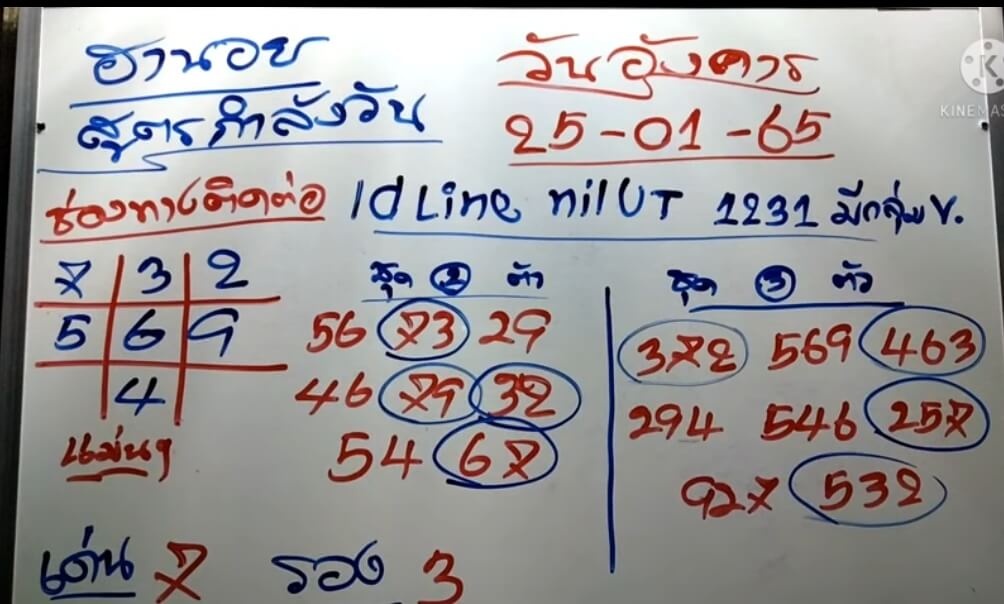 ฮานอย
วันอังคาร
สูตรกำลังวัน
25-01-65
ช่องทางติดต่อ Id Line nilUT 1231 มีกลุ่มV.
7 3 2
5 6 9
4
แม่นๆ
ชุด 2 ตัว
56 73 29
46 79 32
54 67
ชุด 3 ตัว
372 569 463
294 546 257
927 532
เด่น 7 รอง 3
KINEMAS